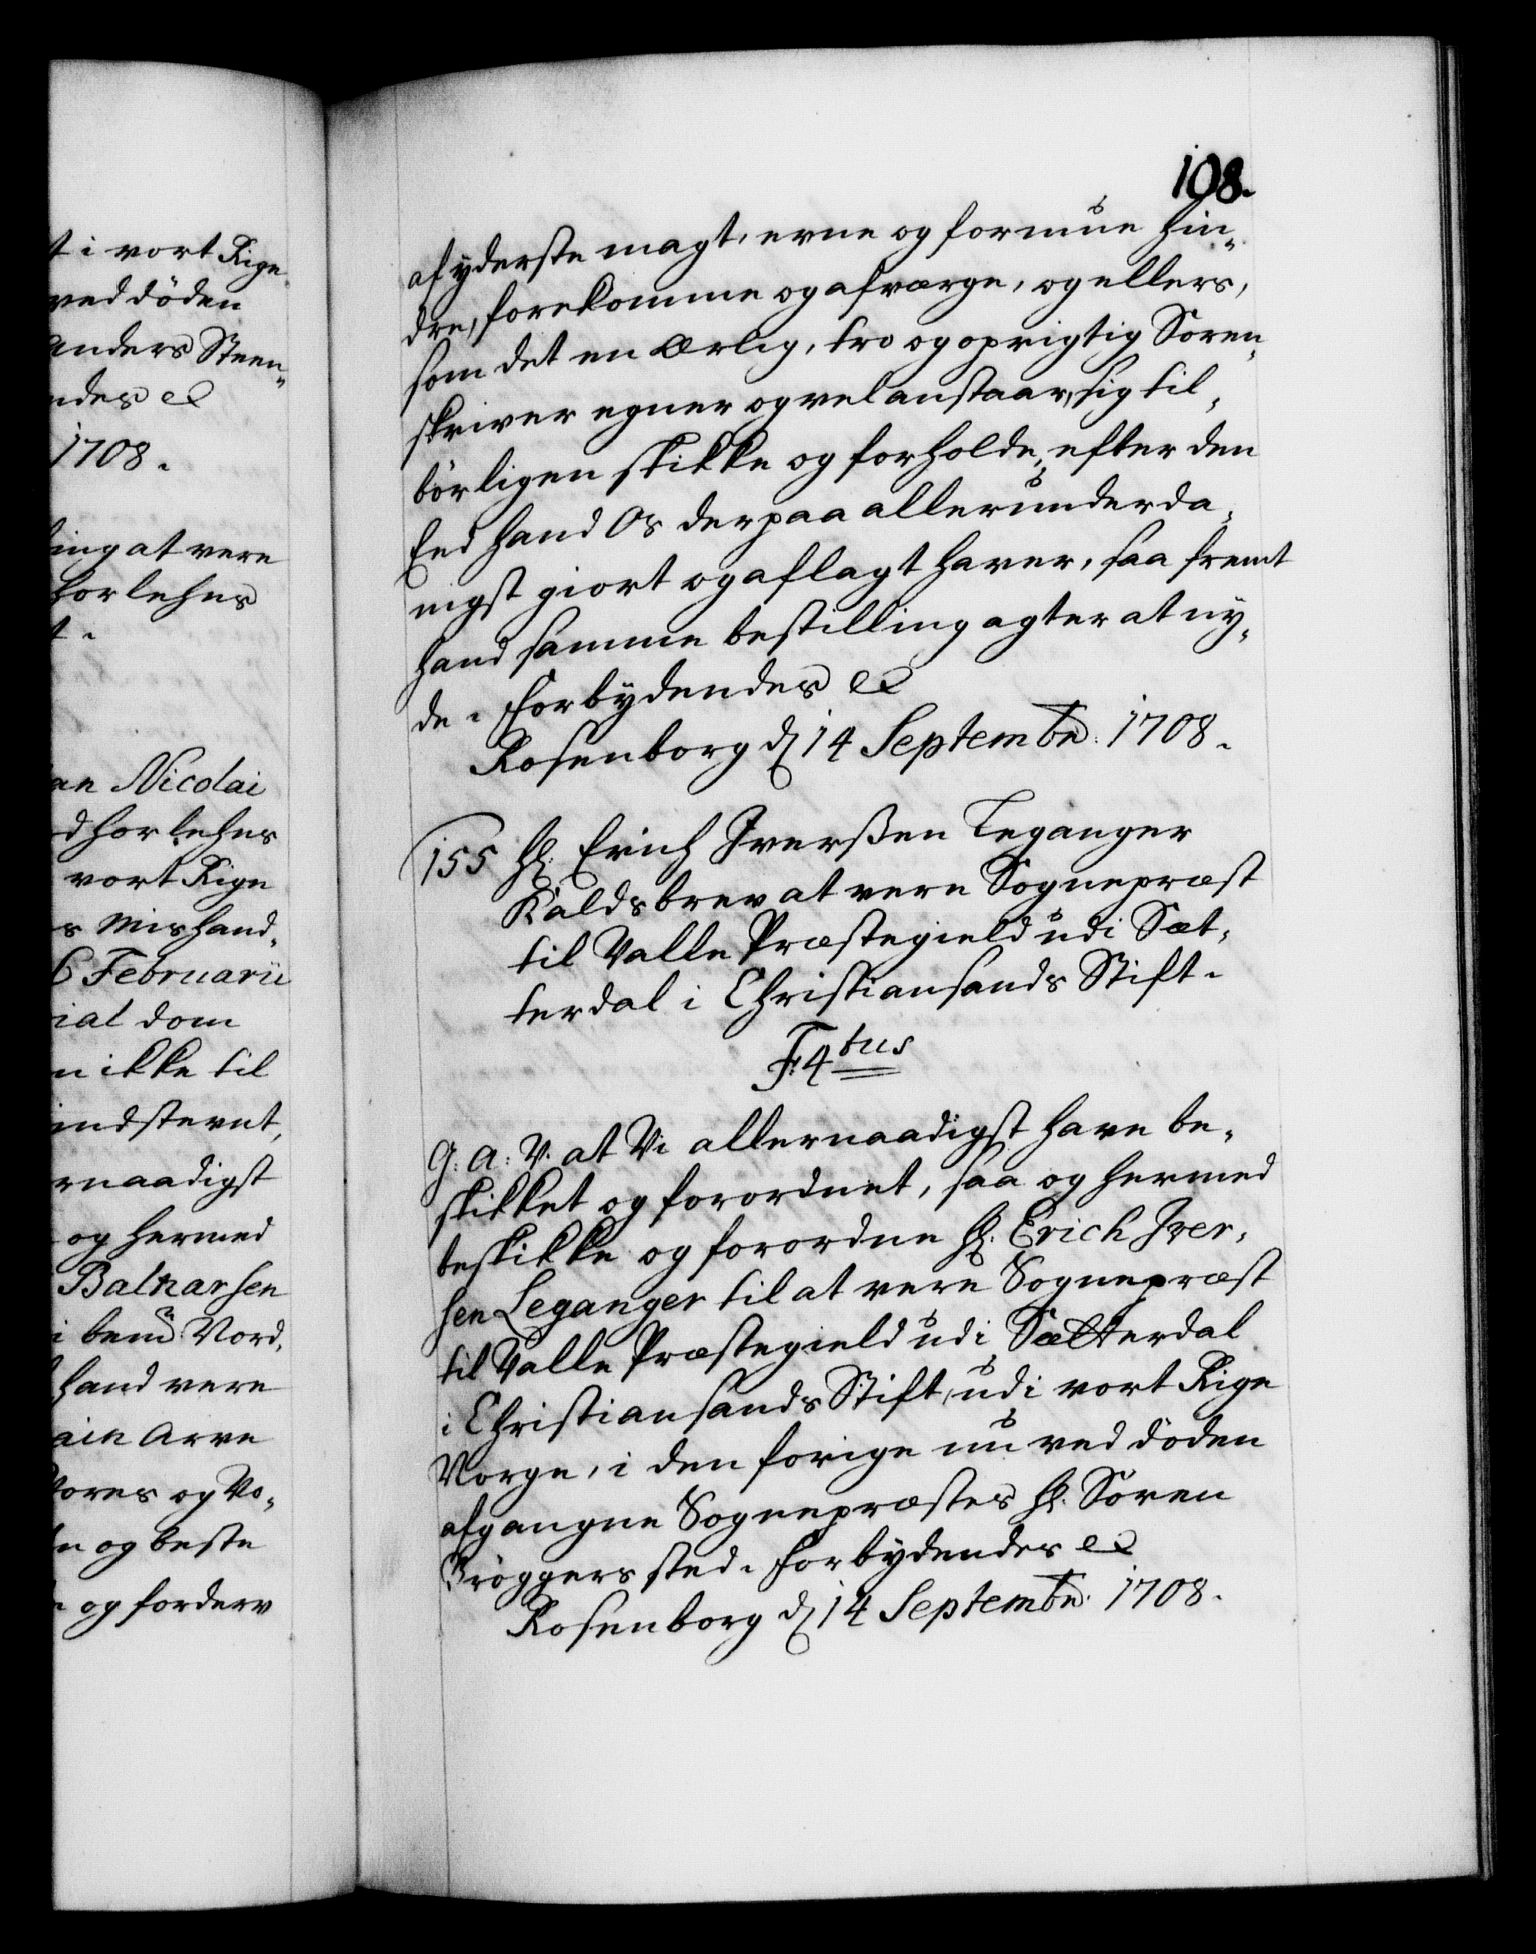 t i vort Rige
ved döden
Anders Steen„
ndes &
1708.
ling at vere
forlehns
t.
an Nicolai
d forlehns
vort Rige
s Mishand„
6 Februarii
ial dom
n ikke til
indstevnt,
rnaadigst
og hermed
Balzarsen
i bem: Nord„
hand vere
Arve
Vores og Vo„
n og beste
og forderv
108.
af yderste magt, evne og formue hin„
dre, forekomme og afværge, og ellers,
som det en ærlig, tro og oprigtig Soren„
skriver egner og vel anstaar, sig til„
börligen skikke og forholde, efter den
Eed hand Os derpaa allerunderda„
nigst giort og aflagt haver, saa fremt
hand samme bestilling agter at ny„
de. Forbydendes &
Rosenborg d 14 Septembr: 1708.
155 Hr: Erich Iverßen Leganger
Kaldsbrev at vere Sognepræst
til Valle Præstegield udi Sæt„
terdal i Christiansands Stift.
F: 4tus
G: A: V: at Vi allernaadigst have be„
skikket og forordnet, saa og hermed
beskikke og forordne Hr: Erich Iver„
sen Leganger til at vere Sognepræst
til Valle Præstegield udi Sætterdal
i Christiansands Stift, udi vort Rige
Norge, i den forige nu ved döden
afgangne Sognepræstes Hr: Sören
Bröggers sted. Forbydendes &
Rosenborg d 14 Septembr: 1708.